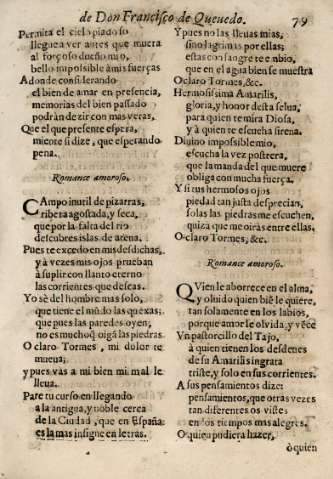 de Don Francisco de Queuedo. 79
Permita el cielo piadoso
llegue a ver antes que muera
al forçoso dueño mio,
bello impossible a mis fuerças
A donde considerando
el bien de amar en presencia,
memorias del bien passado
podran dezir con mas veras,
Que el que presente espera,
micore si dize, que esperando
pena.
Romance amoroso.
CAmpo inutil de pizarras,
ribera agostada, y seca,
que por la falta del rio
descubres islas de arena.
Pues te excedo en mis desdichas,
y à vezes mis ojos prueban
à suplir con llanto eterno
las corrientes que deseas.
Yo sè del hombre mas solo,
que tiene el mũdo las quexas;
que pues las paredes oyen,
no es mucho q̃ oigã las piedras.
O claro Tormes, mi dolor te
mueua;
y pues vas a mi bien mi mal le
lleua.
Pare tu curso en llegando
a la antigua, y noble cerca
de la Ciudad, que en España
es la mas insigne en letras.
Y pues no las lleuas mias,
sino lagrimas por ellas;
estas con sangre te embio,
que en el agua bien se muestra
O claro Tormes, &c.
Hermosissima Amarilis,
gloria, y honor desta selua,
para quien te mira Diosa,
y à quien te escucha sirena.
Diuino impossible mio,
escucha la voz postrera,
que la manda del que muere
obliga con mucha fuerça.
Y si tus hermosos ojos
piedad tan justa desprecian,
solas las piedras me escuchen,
quiza que me oiràs entre ellas.
O claro Tormes, &c.
Romance amoroso.
QVien le aborrece en el alma,
y oluido quien biẽ le quiere,
tan solamente en los labios,
porque amor le olvida, y vẽce
Vn pastorcillo del Tajo,
à quien tienen los desdenes
de su Amarilis ingrata
triste, y solo en sus corrientes.
A sus pensamientos dize:
pensamientos, que otras vezes
tan diferentes os visteis
en los tiempos mas alegres.
O quien pudiera hazer,
ò quien